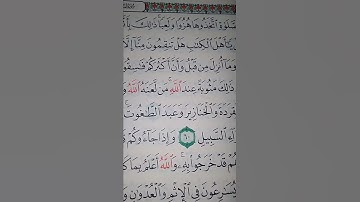 ٱلصَّلَوٰةِ ٱتَّخَذُوهَا هُزُوًا وَلَعِبًا ذَٰلِكَ
يَٰٓأَهۡلَ ٱلۡكِتَٰبِ هَلۡ تَنقِمُونَ مِنَّآ إِلَّآ
وَمَآ أُنزِلَ مِن قَبۡلُ وَأَنَّ أَكۡثَرَكُمۡ فَٰسِقُونَ
ذَٰلِكَ مَثُوبَةً عِندَ ٱللَّهِۚ مَن لَّعَنَهُ ٱللَّهُ
ٱلۡقِرَدَةَ وَٱلۡخَنَازِيرَ وَعَبَدَ ٱلطَّٰغُوتَۚ
ٱلسَّبِيلِ ٦٠ وَإِذَا جَآءُوكُمۡ
قَدۡ خَرَجُواْ بِهِۦۚ وَٱللَّهُ أَعۡلَمُ بِمَا
يُسَٰرِعُونَ فِي ٱلۡإِثۡمِ وَٱلۡعُدۡوَٰنِ